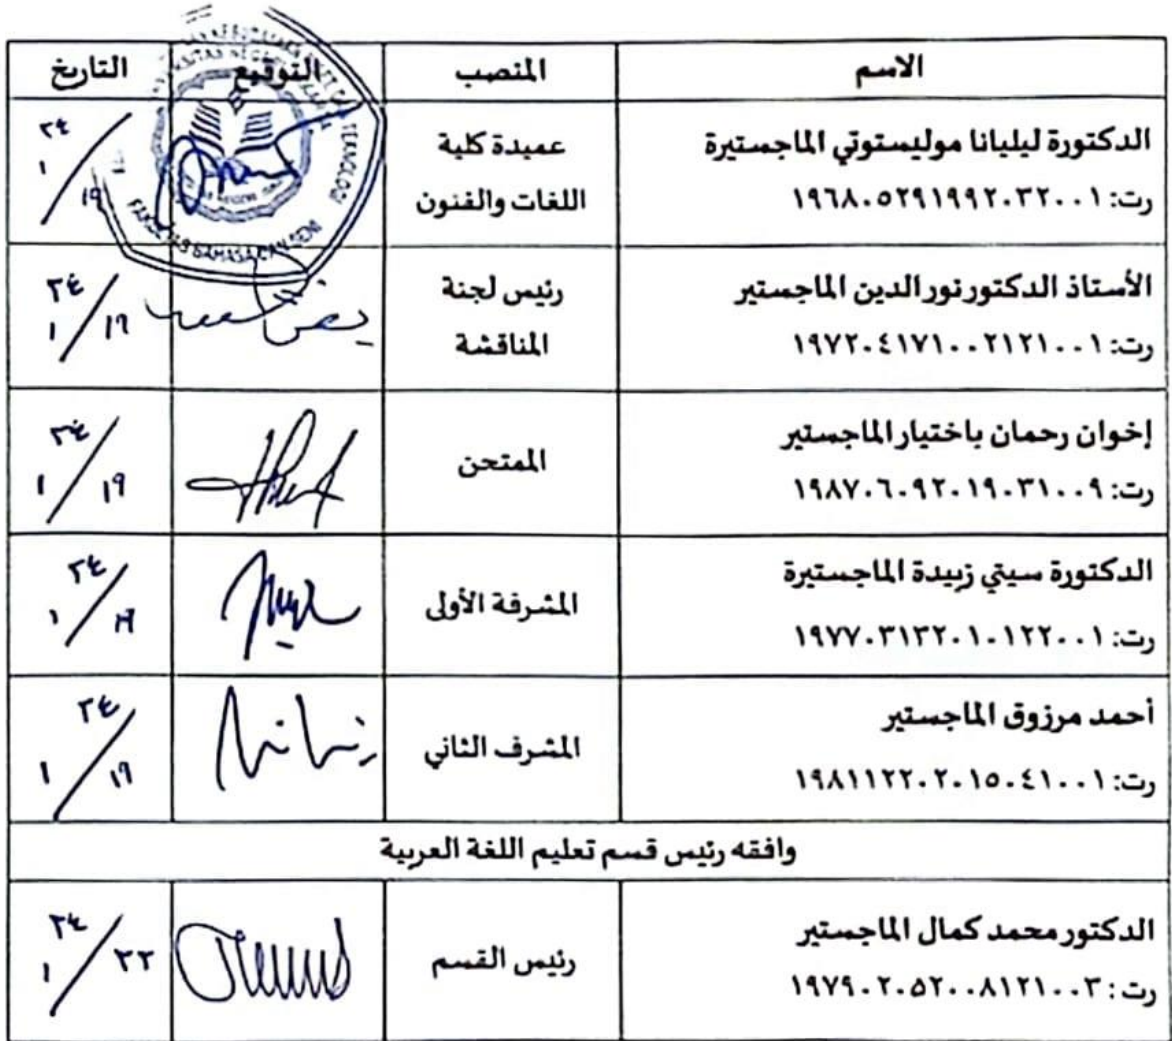 الاسم المنصب التوقيع التاريخ
الدكتورة ليليانا موليستوتي الماجستيرة
رت: ١٩٦٨٠٥٢٩١٩٩٢٠٣٢٠٠١
عميدة كلية
اللغات والفنون
٢٤
١
١٩
TEKNOLOGI
FAKULTAS BAHASA DAN SENI
الأستاذ الدكتور نور الدين الماجستير
رت: ١٩٧٢٠٤١٧١٠٠٢١٢١٠٠١
رئيس لجنة
المناقشة
٢٤
١ ١٩
إخوان رحمان باختيار الماجستير
رت: ١٩٨٧٠٦٠٩٢٠١٩٠٣١٠٠٩
الممتحن
٢٤
١ ١٩
الدكتورة سيتي زبيدة الماجستيرة
رت: ١٩٧٧٠٣١٣٢٠١٠١٢٢٠٠١
المشرفة الأولى
٢٤
١ ١٩
أحمد مرزوق الماجستير
رت: ١٩٨١١٢٢٠٢٠١٥٠٤١٠٠١
المشرف الثاني
٢٤
١ ١٩
وافقه رئيس قسم تعليم اللغة العربية
الدكتور محمد كمال الماجستير
رت: ١٩٧٩٠٢٠٥٢٠٠٨١٢١٠٠٣
رئيس القسم
٢٤
١ ٢٢